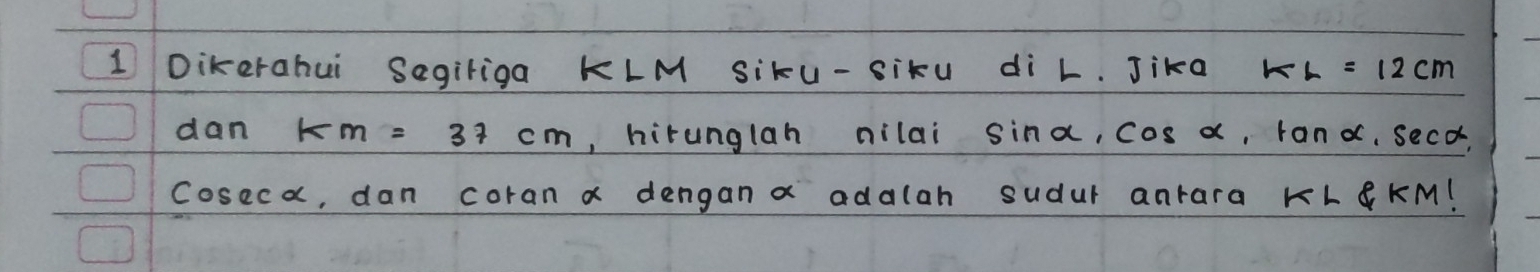 1 Diketahui Segitiga KLM siku-siku di L. Jika KL = 12 cm
dan KM = 37 cm, hitunglah nilai sin α, cos α, tan α, sec α,
Cosec α, dan cotan α dengan α adalah sudut antara KL & KM!